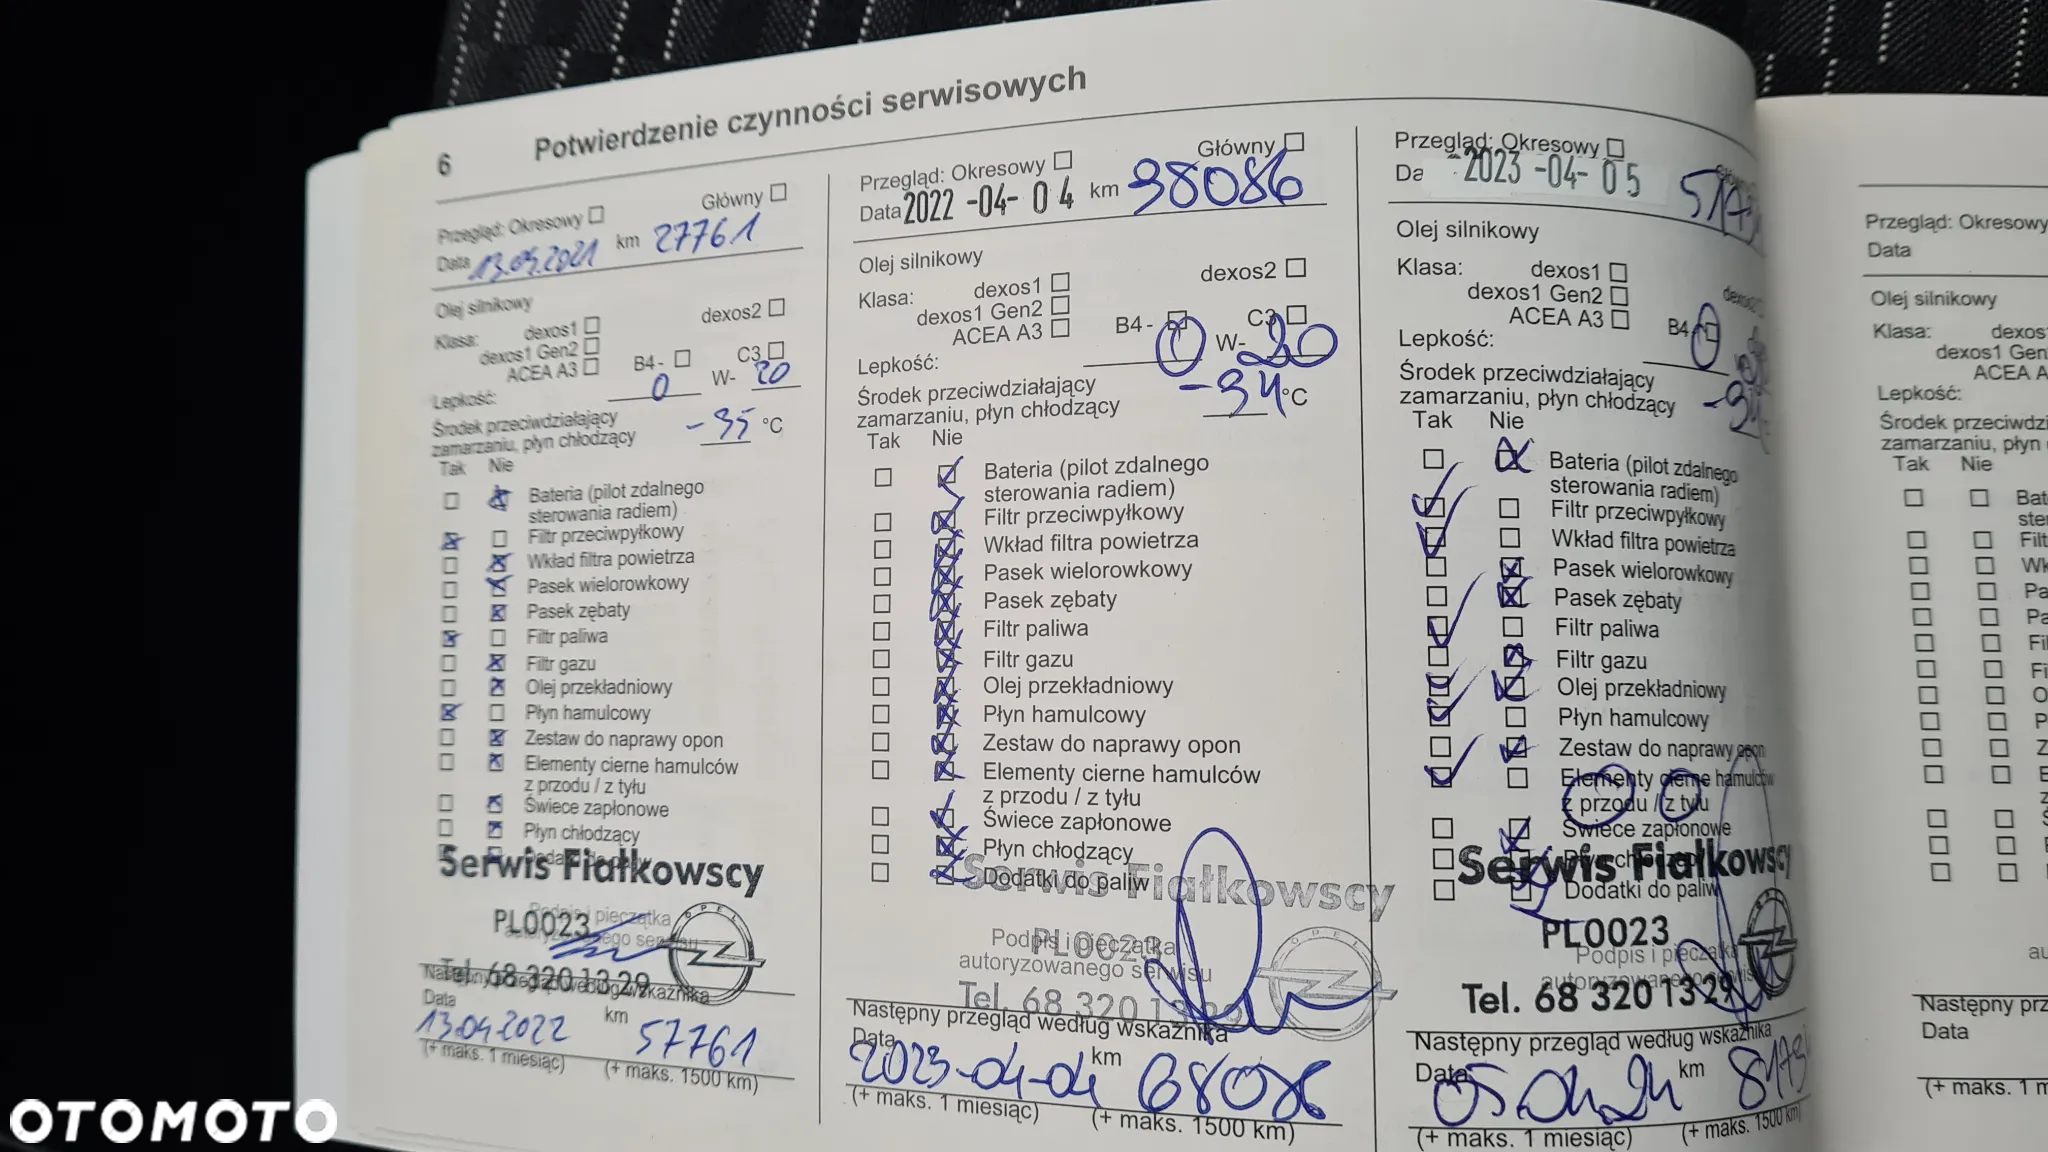 6 Potwierdzenie czynności serwisowych
Przegląd: Okresowy Główny
Data 13.04.2021 km 27761
Olej silnikowy
Klasa: dexos1 dexos2
dexos1 Gen2
ACEA A3 B4 - C3
Lepkość: 0 W- 20
Środek przeciwdziałający
zamarzaniu, płyn chłodzący - 35 °C
Tak Nie
Bateria (pilot zdalnego
sterowania radiem)
Filtr przeciwpyłkowy
Wkład filtra powietrza
Pasek wielorowkowy
Pasek zębaty
Filtr paliwa
Filtr gazu
Olej przekładniowy
Płyn hamulcowy
Zestaw do naprawy opon
Elementy cierne hamulców
z przodu / z tyłu
Świece zapłonowe
Płyn chłodzący
Serwis Fiałkowscy
PL0023
Podpis i pieczątka
OPEL
Tel. 68 320 13 29
Następny przegląd według wskaźnika
Data 13.04.2022 km 57761
(+ maks. 1 miesiąc) (+ maks. 1500 km)
Przegląd: Okresowy Główny
Data 2022 -04- 04 km 38086
Olej silnikowy
Klasa: dexos1 dexos2
dexos1 Gen2
ACEA A3 B4 - C3
Lepkość: 0 W- 20
Środek przeciwdziałający
zamarzaniu, płyn chłodzący -34 °C
Tak Nie
Bateria (pilot zdalnego
sterowania radiem)
Filtr przeciwpyłkowy
Wkład filtra powietrza
Pasek wielorowkowy
Pasek zębaty
Filtr paliwa
Filtr gazu
Olej przekładniowy
Płyn hamulcowy
Zestaw do naprawy opon
Elementy cierne hamulców
z przodu / z tyłu
Świece zapłonowe
Płyn chłodzący
Dodatki do paliw
Serwis Fiałkowscy
PL0023
Podpis i pieczątka
autoryzowanego serwisu
OPEL
Tel. 68 320 13 29
Następny przegląd według wskaźnika
Data 2023-04-04 km 68086
(+ maks. 1 miesiąc) (+ maks. 1500 km)
Przegląd: Okresowy
Da 2023 -04- 05
Olej silnikowy
Klasa: dexos1
dexos1 Gen2
ACEA A3 B4
Lepkość: 0
Środek przeciwdziałający
zamarzaniu, płyn chłodzący -34
Tak Nie
Bateria (pilot zdalnego
sterowania radiem)
Filtr przeciwpyłkowy
Wkład filtra powietrza
Pasek wielorowkowy
Pasek zębaty
Filtr paliwa
Filtr gazu
Olej przekładniowy
Płyn hamulcowy
Zestaw do naprawy opon
Elementy cierne hamulców
z przodu / z tyłu
Świece zapłonowe
Dodatki do paliw
Serwis Fiałkowscy
PL0023
Podpis i pieczątka
autoryzowanego serwisu
Tel. 68 320 13 29
Następny przegląd według wskaźnika
Data 05.04.24 km
(+ maks. 1 miesiąc) (+ maks. 1500 km)
Przegląd: Okresowy
Data
Olej silnikowy
Klasa: dexos
dexos1 Gen
ACEA A
Lepkość:
Środek przeciwdzi
zamarzaniu, płyn
Tak Nie
Bat
ste
Filt
Wk
Pa
Pa
Fi
Fi
O
P
Z
E
z
Ś
P
au
Następny prz
Data
(+ maks. 1 m
OTOMOTO